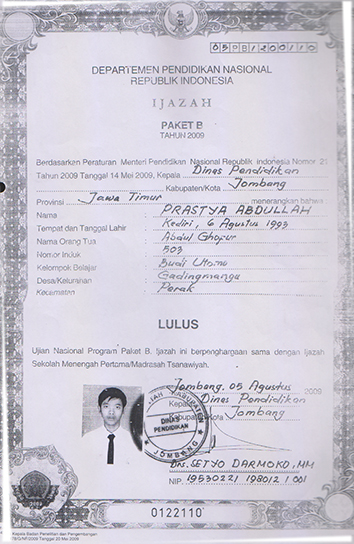 05PB 1200110
DEPARTEMEN PENDIDIKAN NASIONAL
REPUBLIK INDONESIA
IJAZAH
PAKET B
TAHUN 2009
Berdasarkan Peraturan Menteri Pendidikan Nasional Republik Indonesia Nomor
Tahun 2009 Tanggal 14 Mei 2009, Kepala Dinas Pendidikan
Kabupaten/Kota Jombang
Provinsi Jawa Timur menerangkan bahwa
Nama : PRASTYA ABDULLAH
Tempat dan Tanggal Lahir : Kediri, 6 Agustus 1993
Nama Orang Tua : Abdul Ghofur
Nomor Induk : 503
Kelompok Belajar : Budi Utomo
Desa/Kelurahan : Gadingmangu
Kecamatan : Perak
LULUS
Ujian Nasional Program Paket B. Ijazah ini berpenghargaan sama dengan Ijazah
Sekolah Menengah Pertama/Madrasah Tsanawiyah.
Jombang, 05 Agustus 2009
Kepala Dinas Pendidikan
Kabupaten/Kota Jombang
KABUPATEN
DINAS
PENDIDIKAN
JOMBANG
Drs. SETYO DARMOKO, MM
NIP. 19530221 198012 1 001
0122110
Kepala Badan Penelitian dan Pengembangan